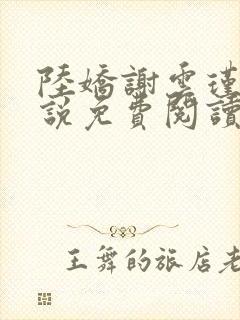 陸嬌謝雲瑾
說免費閱讀
王舞的旅店老